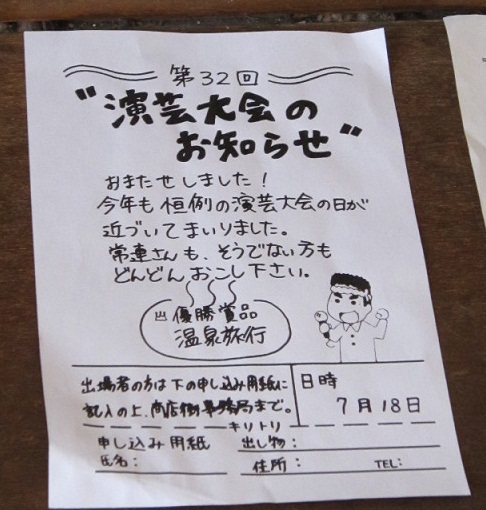 第32回
"演芸大会の
お知らせ"
おまたせしました!
今年も恒例の演芸大会の日が
近づいてまいりました。
常連さんも、そうでない方も
どんどんおこし下さい。
優勝賞品
温泉旅行
出場者の方は下の申し込み用紙に
記入の上、商店街事務局まで。
日時
7月18日
キリトリ
申し込み用紙
出し物:
氏名:
住所:
TEL: